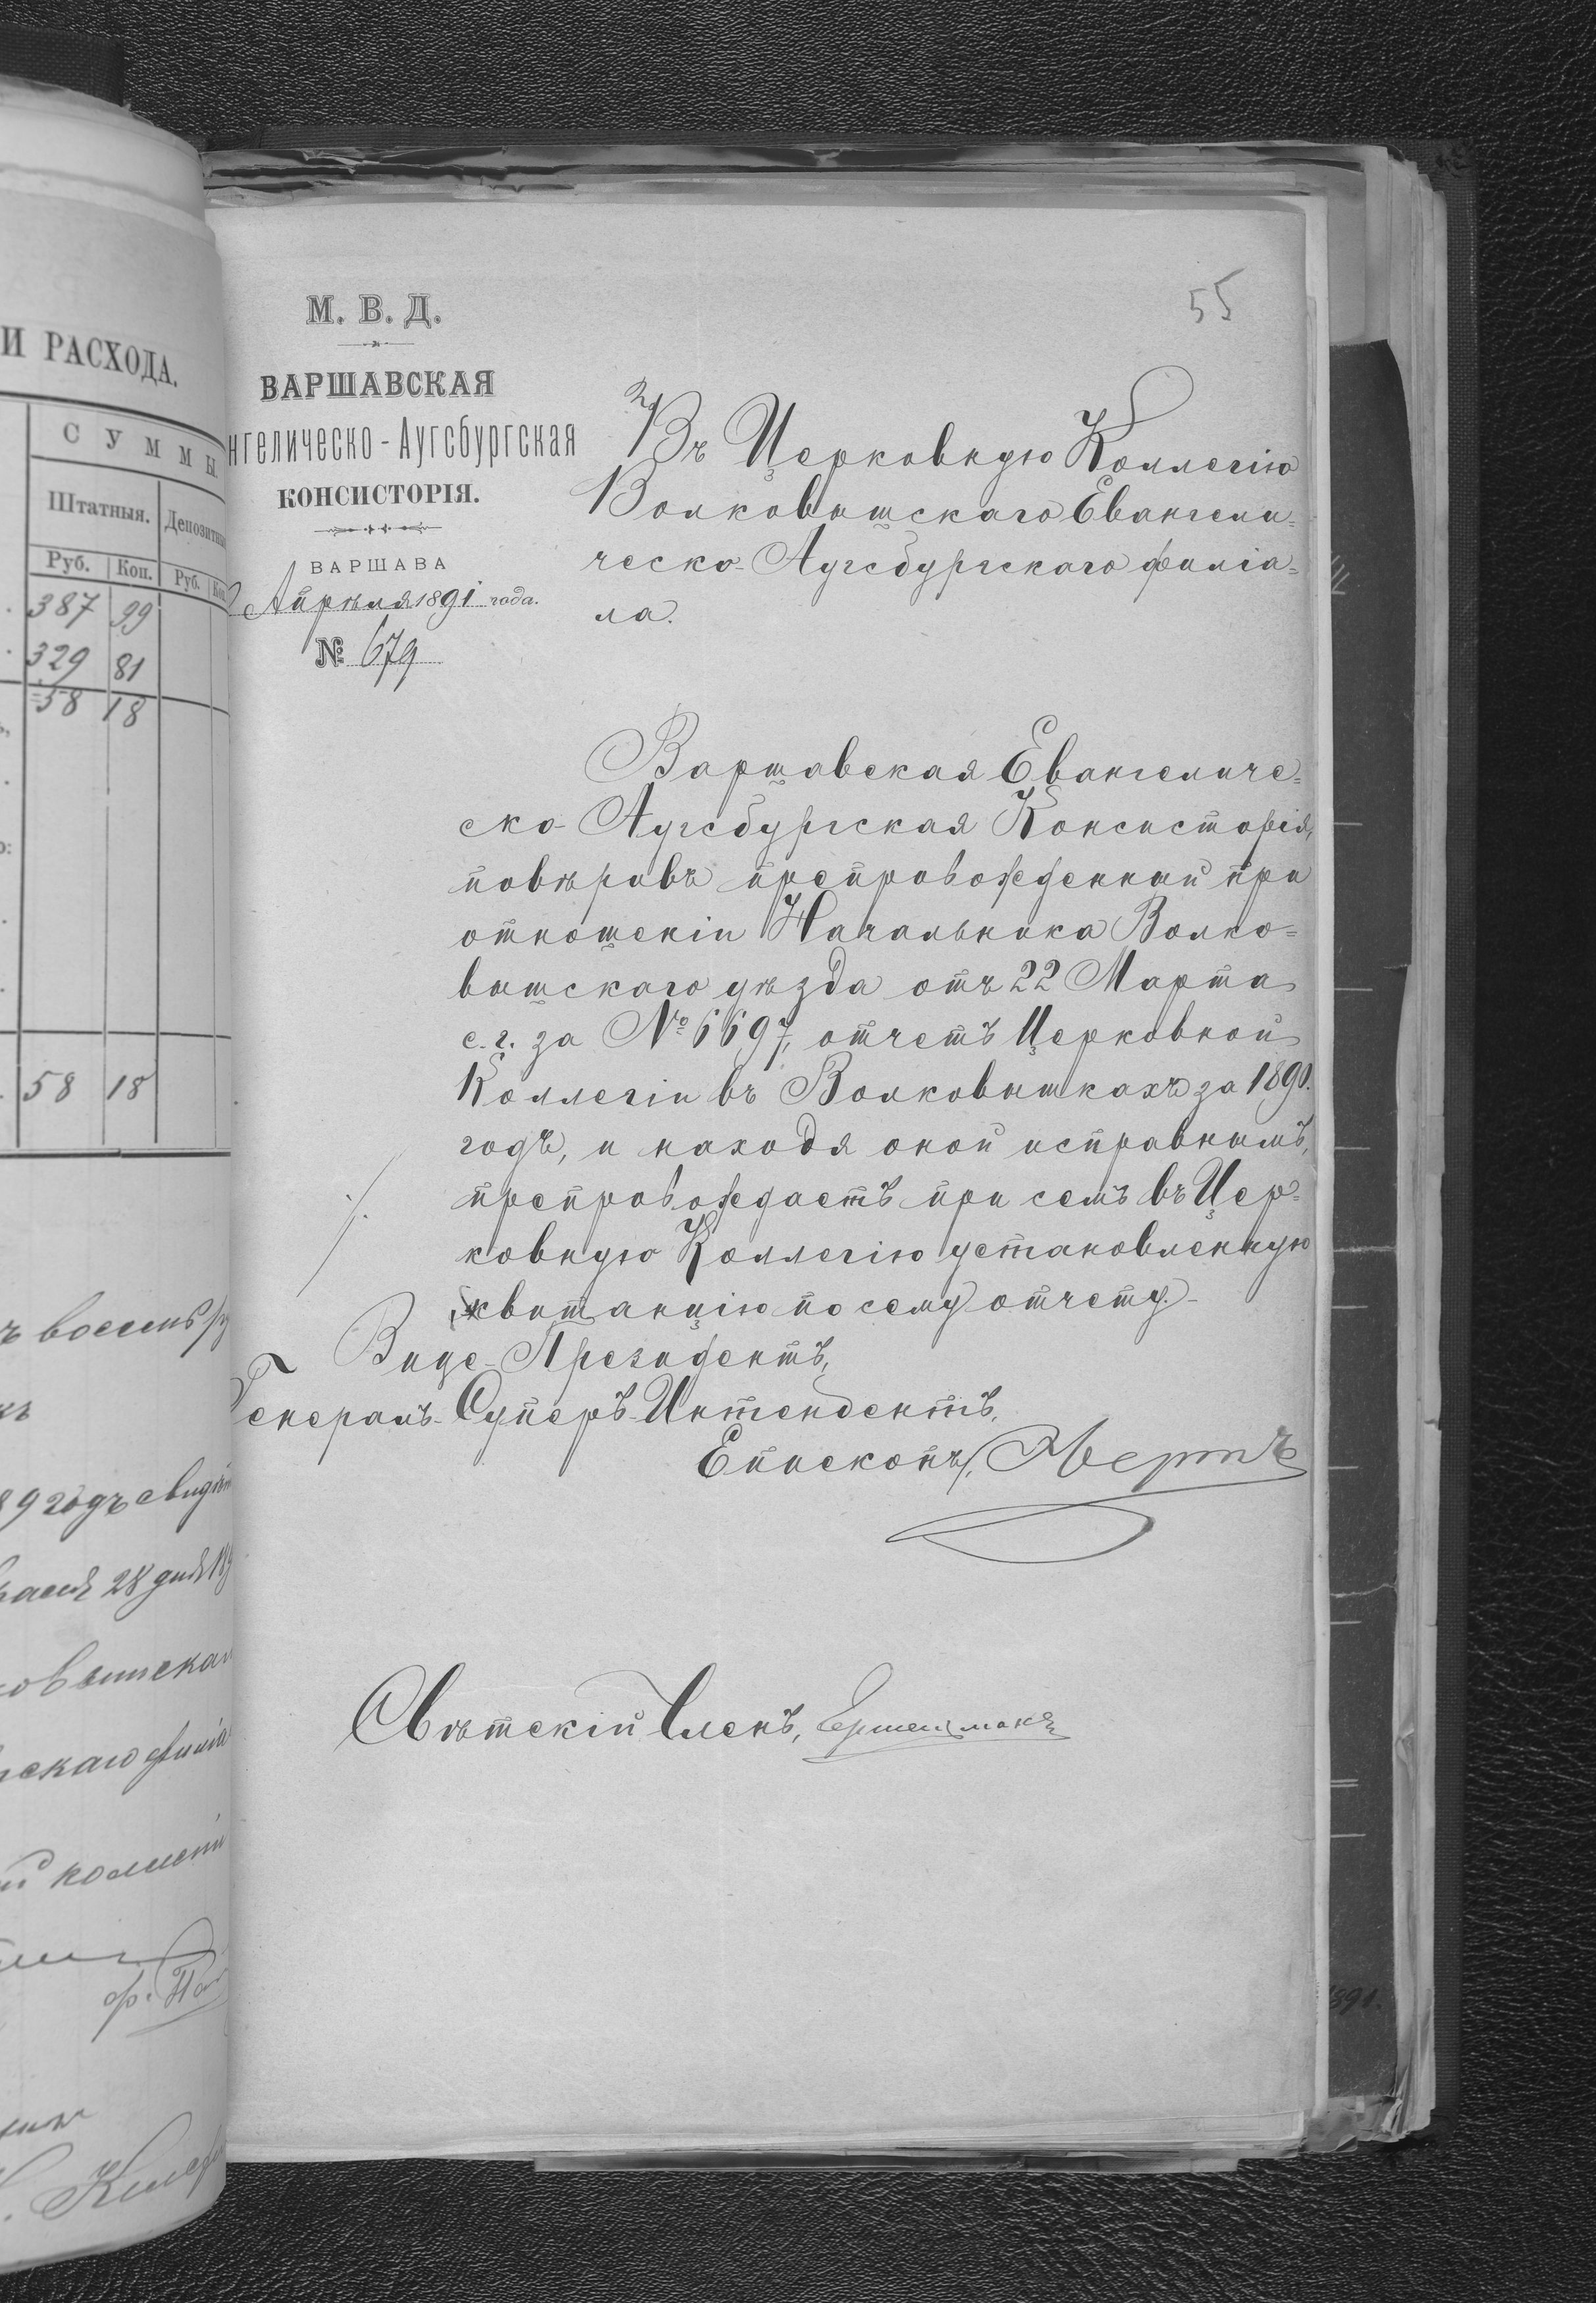 И РАСХОДА.
СУММЫ
Штатныя.
Руб. Коп. Руб.
387 99
329 81
58 18
58 18
восемь
годъ
28 дня
55
М. В. Д.
ВАРШАВСКАЯ
нгелическо-Аугсбургская
КОНСИСТОРІЯ.
ВАРШАВА
Апрѣля 1891 года.
№ 679
Въ Церковную Коллегію
Волковышскаго Евангели=
ческо-Аугсбургскаго филіа=
ла.
Варшавская Евангеличе=
ско-Аугсбургская Консисторія,
повѣривъ препровожденный при
отношеніи Начальника Волко=
вышскаго уѣзда отъ 22 Марта
с. г. за № 6697, отчетъ Церковной
Коллегіи въ Волковышкахъ за 1890.
годъ, и находя оной исправнымъ,
препровождаетъ при семъ въ Цер=
ковную Коллегію установленную
квитанцію по сему отчету.
Вице-Президентъ,
Генералъ-Суперъ-Интендентъ,
Епископъ, Эвертъ
Свѣтскій Членъ,